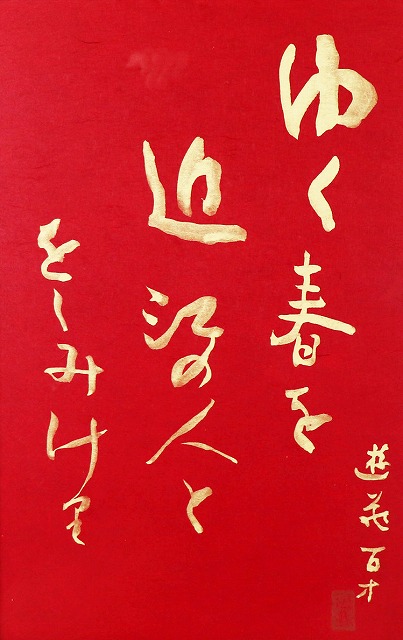 ゆく春を
近江の人と
をしみけり
遊 百才